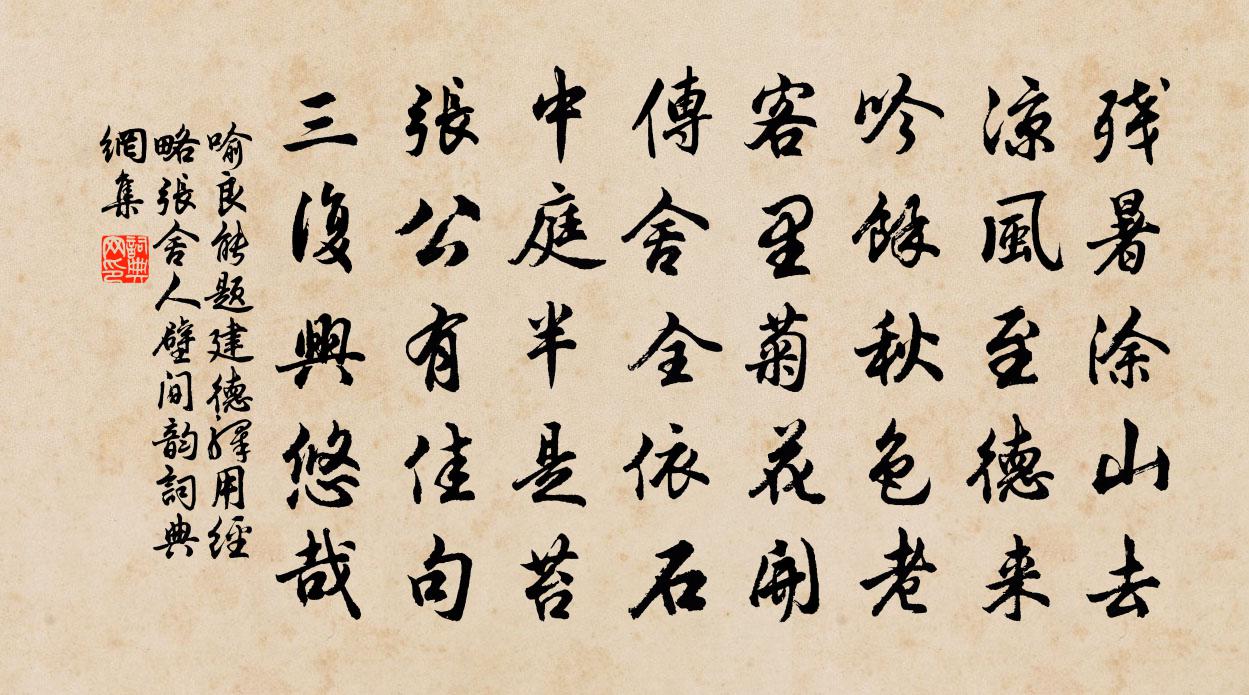 残暑涂山去
凉風至德来
吟餘秋色老
客里菊花開
傳舍全依石
中庭半是苔
張公有佳句
三復興悠哉
喻良能题建德驛用經
略張舍人壁间韵詞典
網集
詞典
网印